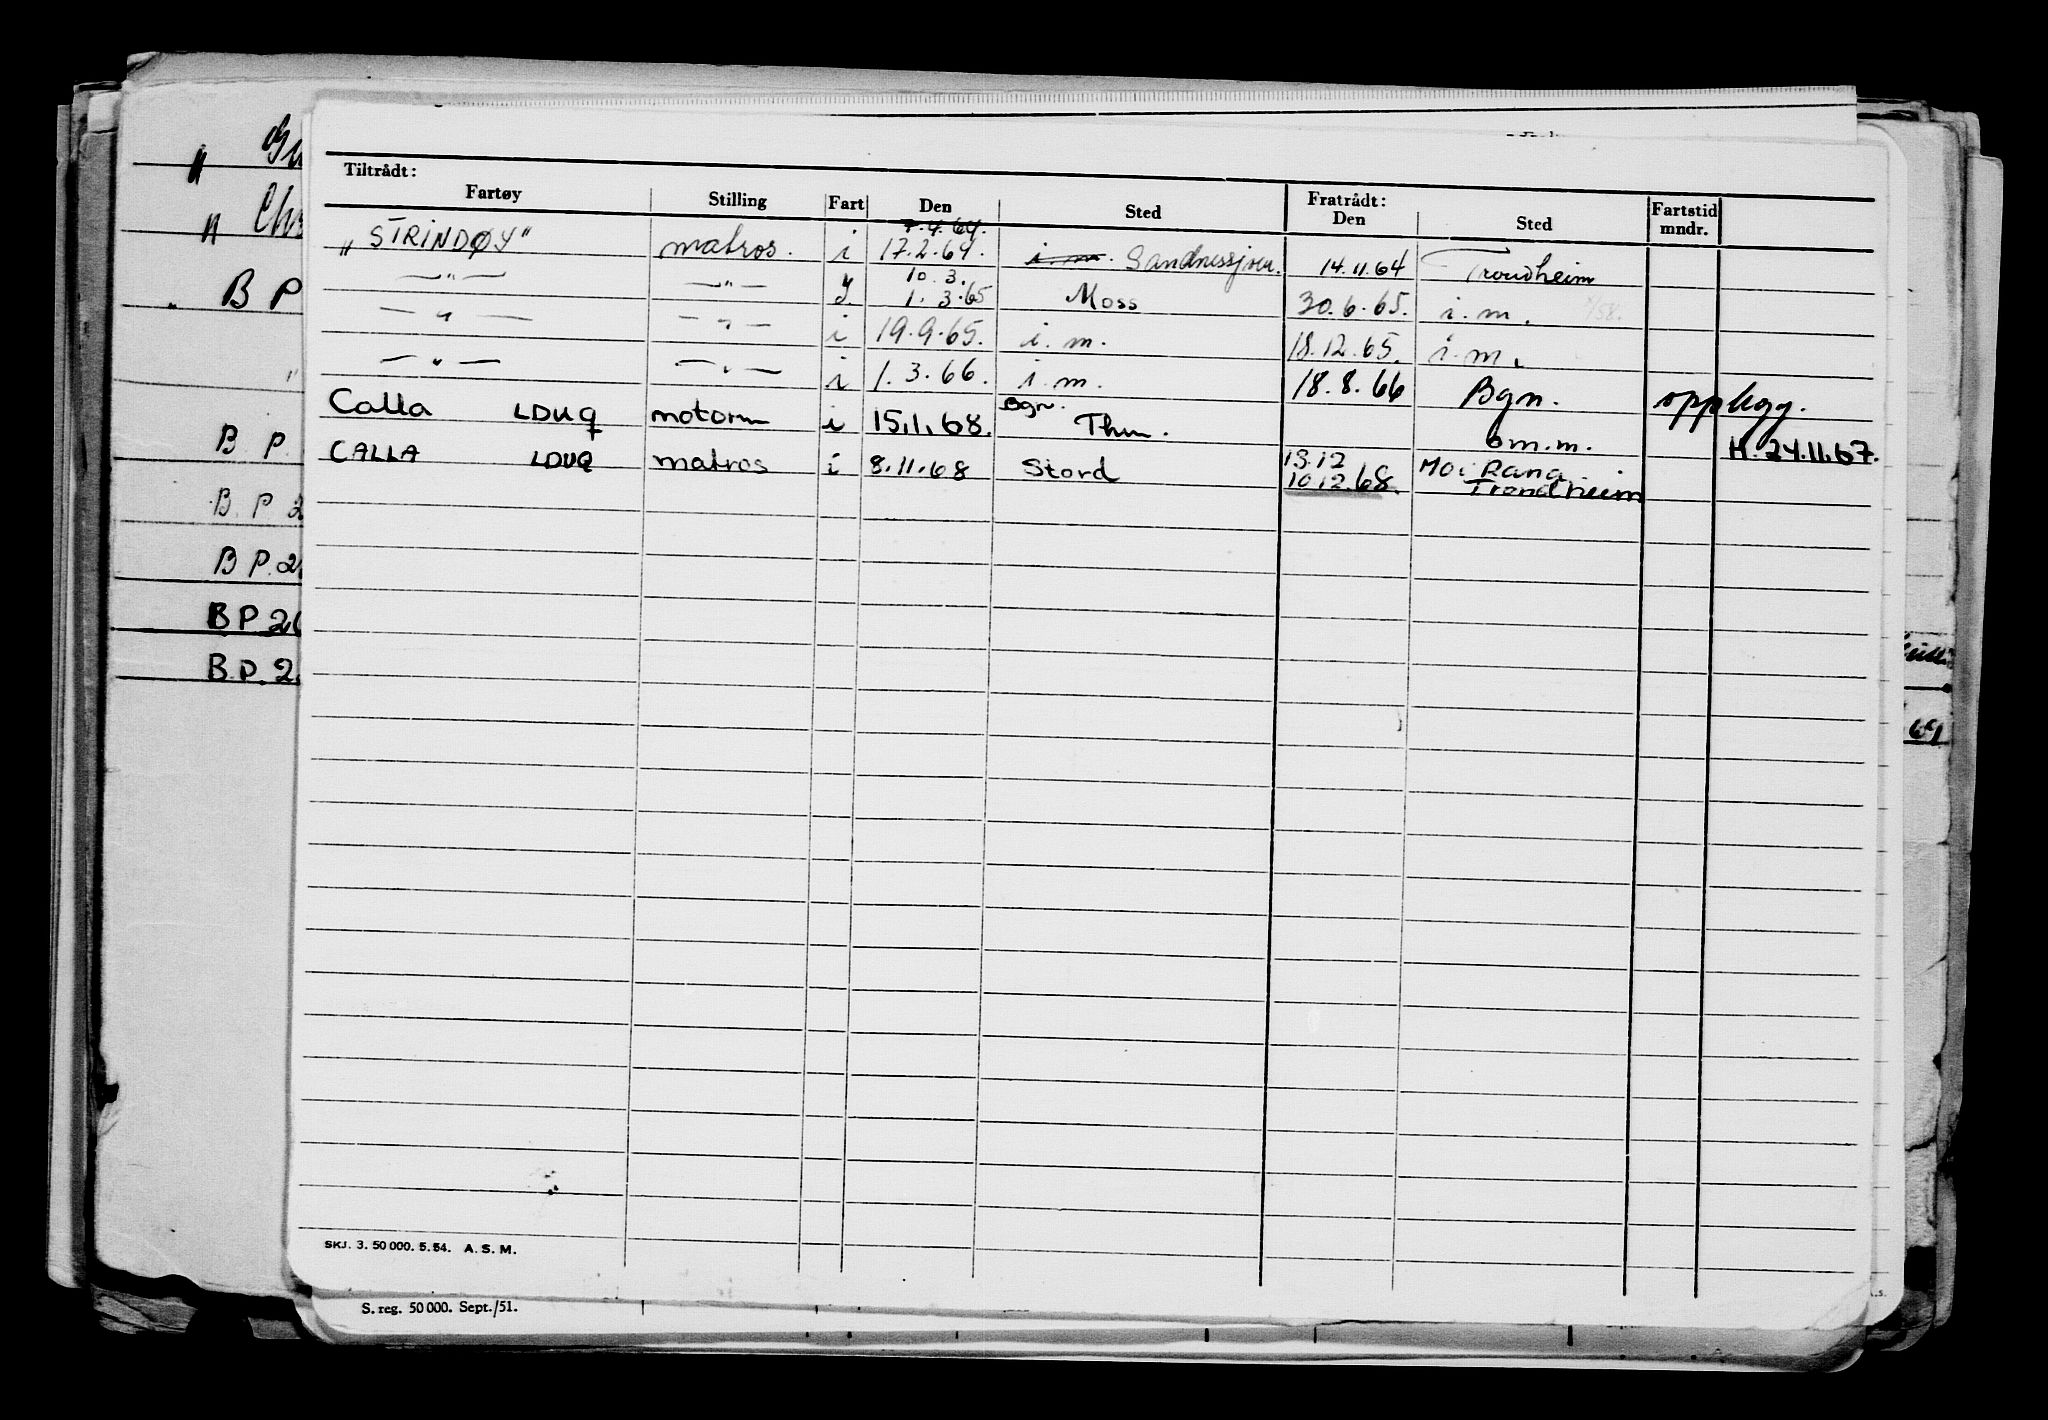 Tiltrådt: Fratrådt:
Fartøy Stilling Fart Den Sted Den Sted Fartstid mndr.
7.4.64.
"STRINDØY" matros. i 17.2.64. i.m. Sandnessjøen. 14.11.64 Trondheim
10.3.
—"— —"— y 1.3.65 Moss 30.6.65. i.m.
—"— —"— i 19.9.65. i.m. 18.12.65. i.m.
—"— —"— i 1.3.66. i.m. 18.8.66 Bgn. opplegg.
Bgn.
Calla LDUQ motorm i 15.1.68. Thm. om.m. H. 24.11.67.
13.12 Mo i Rana
CALLA LDUQ matros i 8.11.68 Stord 10.12.68. Trondheim
SKJ. 3. 50 000. 5. 54. A. S. M.
S. reg. 50 000. Sept./51.
B P
B P.
B. P. 2
B P. 2
B P 2
B. P. 2
69